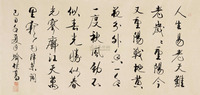 人生易老天難
老歲々重陽今
又重陽戰地黄
花分外香一年
一度秋風勁不
似春光勝似春
光寥廓江天萬
里霜